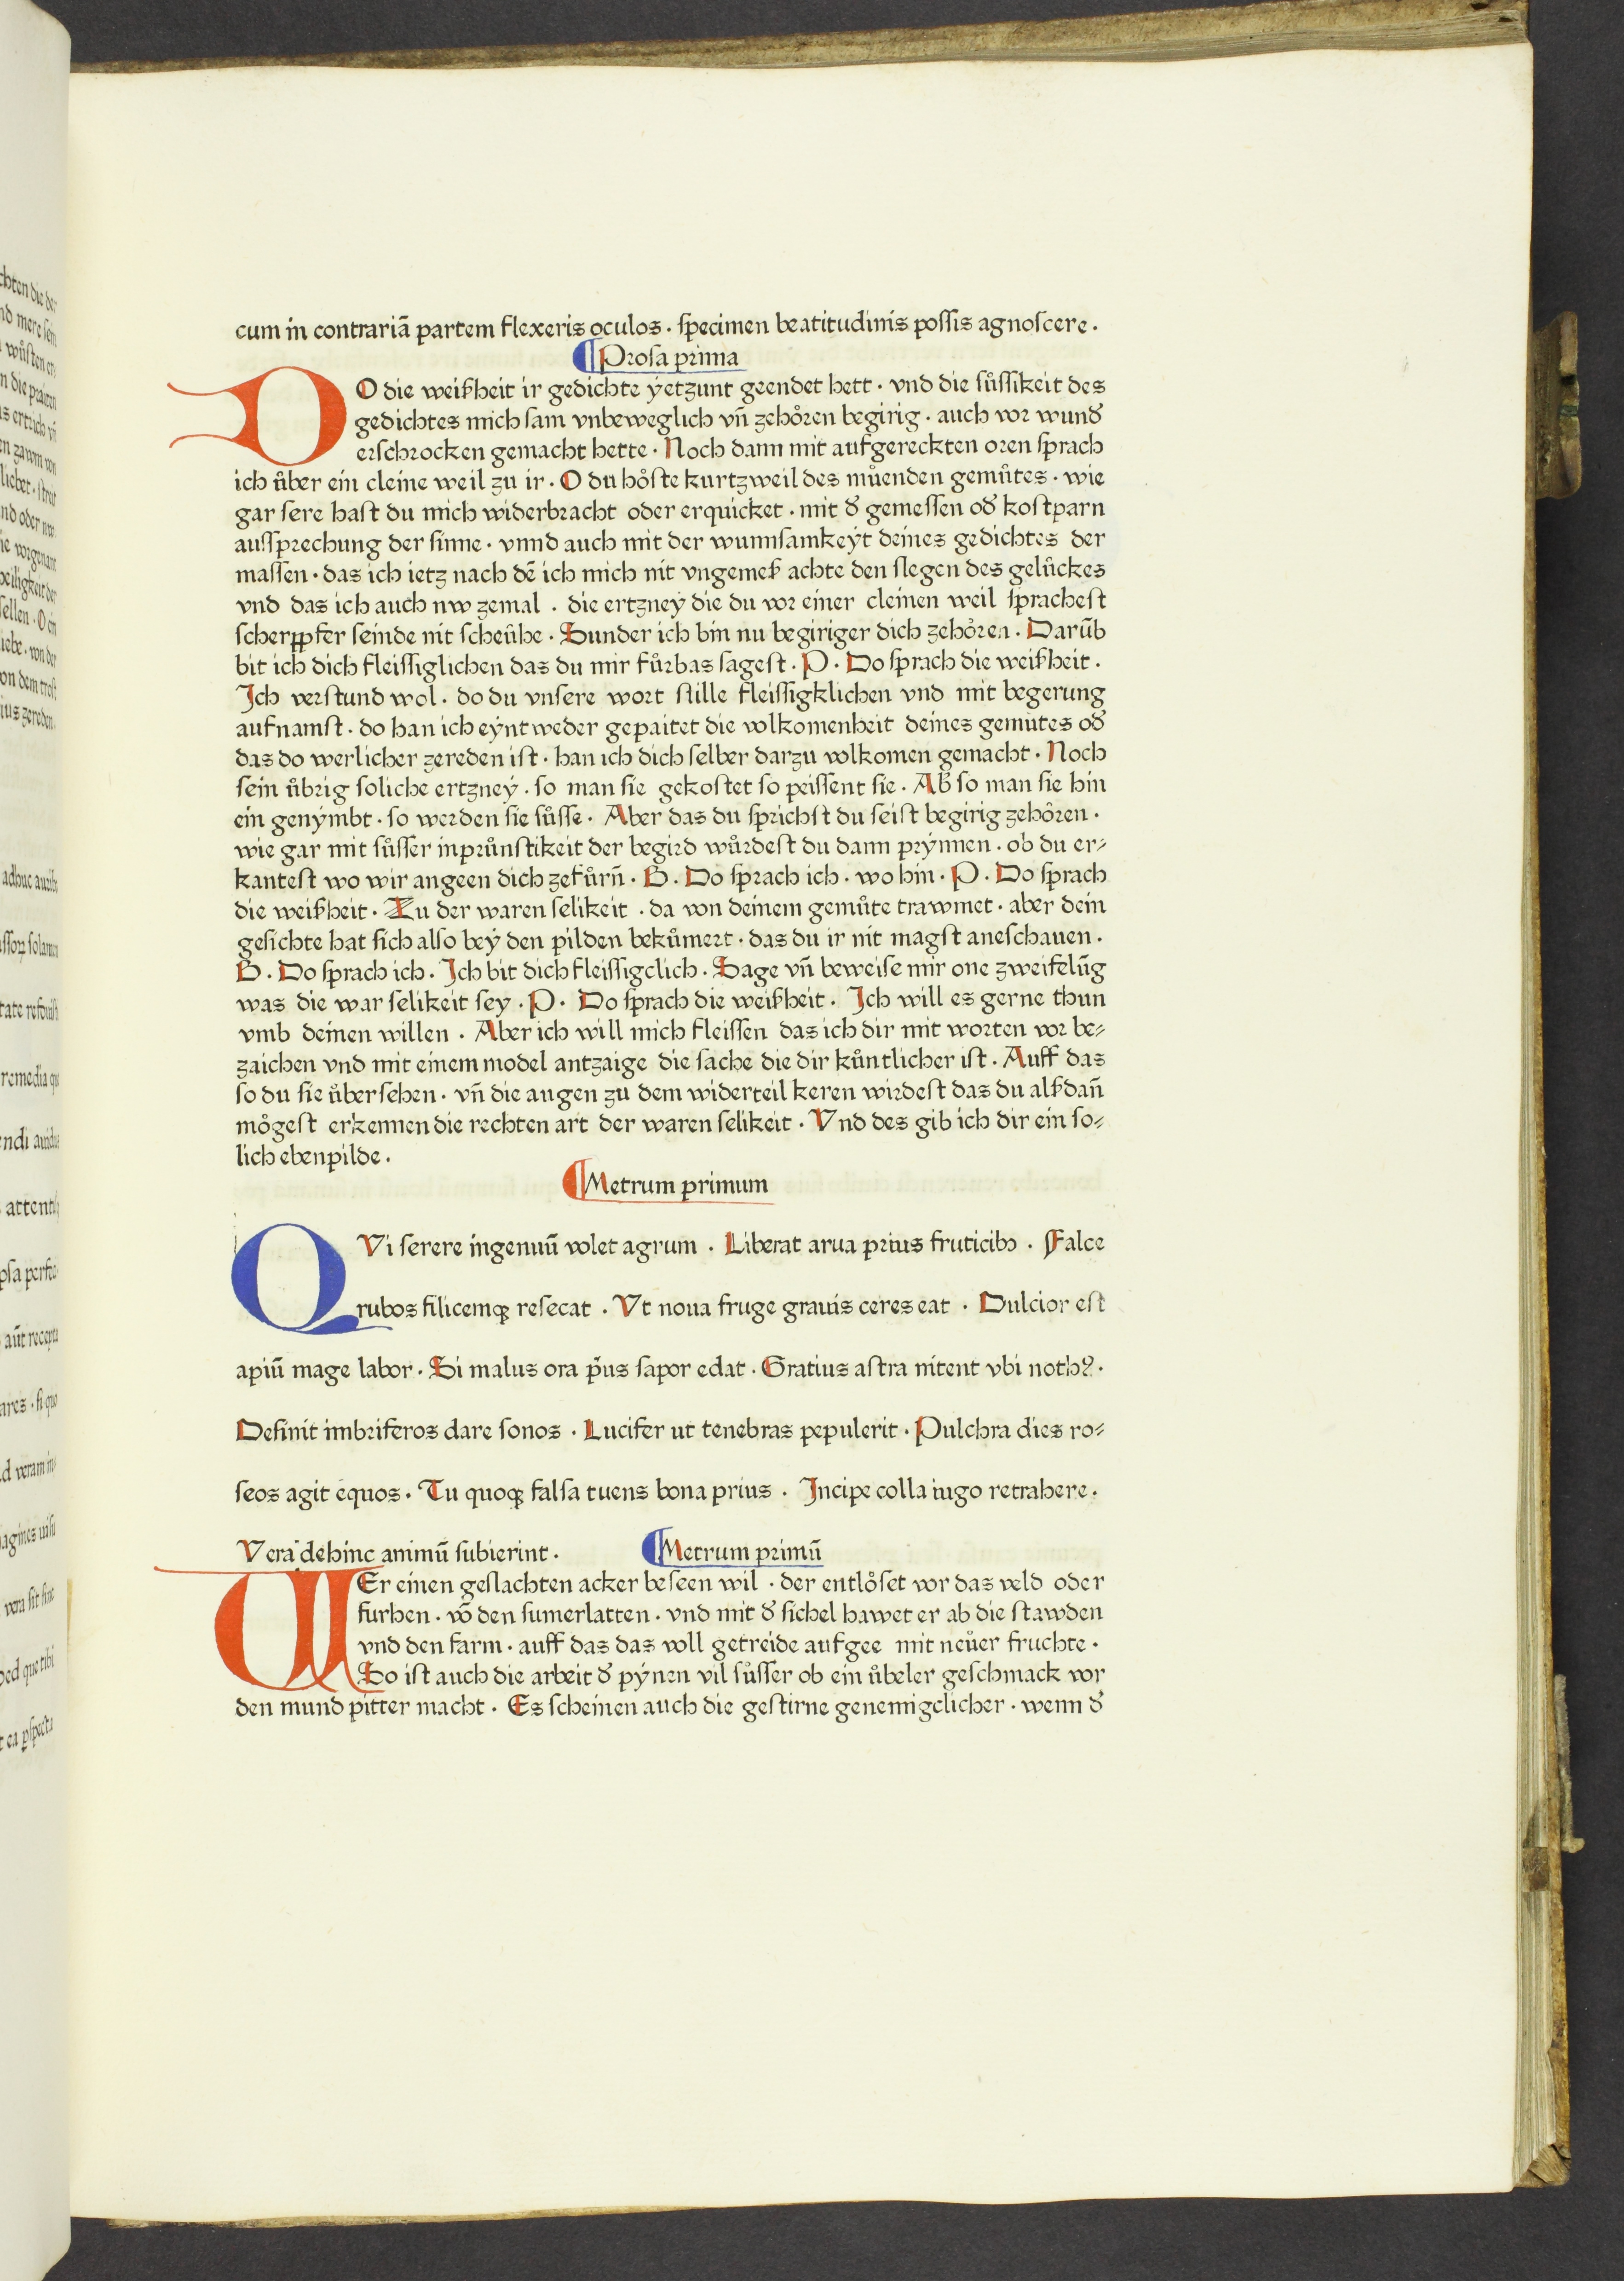 cum in contrariā partem flexeris oculos · ſpecimen beatitudinis poſſis agnoſcere ·
¶Proſa prima
DO die weiſzheit ir gedichte yetzunt geendet hett · vnd die ſuͦſſikeit des
gedichtes mich ſam vnbeweglich vn̄ zehoͤren begirig · auch vor wund̛
erſchrocken gemacht hette · Noch dann mit aufgereckten oren ſprach
ich uͦber ein cleine weil zu ir · O du hoͤſte kurtzweil des muͦenden gemuͤtes · wie
gar ſere haſt du mich widerbracht oder erquicket · mit d̛ gemeſſen od̛ koſtparn
auſſprechung der ſinne · vnnd auch mit der wunnſamkeyt deines gedichtes der
maſſen · das ich ietz nach dē ich mich nit vngemeſz achte den ſlegen des geluͦckes
vnd das ich auch nw zemal · die ertzney die du vor einer cleinen weil ſpracheſt
ſcherppfer ſeinde nit ſcheuͤhe · Sunder ich bin nu begiriger dich zehoͤren · Darūb
bit ich dich fleiſſiglichen das du mir fuͦrbas ſageſt · P · Do ſprach die weiſzheit ·
Jch verſtund wol · do du vnſere wort ſtille fleiſſigklichen vnd mit begerung
aufnamſt · do han ich eyntweder gepaitet die volkomenheit deines gemuͤtes od̛
das do werlicher zereden iſt · han ich dich ſelber darzu volkomen gemacht · Noch
ſein uͦbrig ſoliche ertzney · so man ſie gekoſtet so peiſſent ſie · Ab̛ so man ſie hin
ein genymbt · so werden ſie ſuͦſſe · Aber das du ſprichſt du ſeiſt begirig zehoͤren ·
wie gar mit ſuͦſſer inpruͦnſtikeit der begird wuͦrdeſt du dann prynnen · ob du er⸗
kanteſt wo wir angeen dich zefuͦrn̄ · B · Do ſprach ich · wo hin · P · Do ſprach
die weiſzheit · Zu der waren ſelikeit · da von deinem gemuͦte trawmet · aber dein
geſichte hat ſich alſo bey den pilden bekuͦmert · das du ir nit magſt aneſchauen ·
B · Do ſprach ich · Jch bit dich fleiſſigclich · Sage vn̄ beweiſe mir one zweifelūg
was die war ſelikeit ſey · P · Do ſprach die weiſzheit · Jch will es gerne thun
vmb deinen willen · Aber ich will mich fleiſſen das ich dir mit worten vor be⸗
zaichen vnd mit einem model antzaige die ſache die dir kuͦntlicher iſt · Auff das
so du ſie uͦberſehen · vn̄ die augen zu dem widerteil keren wirdeſt das du alſzdan̄
moͤgeſt erkennen die rechten art der waren ſelikeit · Vnd des gib ich dir ein ſo⸗
lich ebenpilde ·
¶Metrum primum
QVi ſerere ingenuū volet agrum · Liberat arua prius fruticibꝰ · Falce
rubos filicemqꝫ reſecat · Vt noua fruge grauis ceres eat · Dulcior eſt
apiū mage labor · Si malus ora p̄us ſapor edat · Gratius aſtra nitent vbi nothꝰ ·
Definit imbriferos dare ſonos · Lucifer ut tenebras pepulerit · Pulchra dies ro⸗
ſeos agit equos · Tu quoqꝫ falſa tuens bona prius · Jncipe colla iugo retrahere ·
Vera dehinc animū ſubierint · ¶Metrum primū
WEr einen geſlachten acker beſeen wil · der entloͤſet vor das veld oder
furhen · vō den ſumerlatten · vnd mit d̛ ſichel hawet er ab die ſtawden
vnd den farm · auff das das voll getreide aufgee mit neuͦer fruchte ·
So iſt auch die arbeit d̛ pynen vil ſuͦſſer ob ein uͦbeler geſchmack vor
den mund pitter macht · Es ſcheinen auch die geſtirne genemigclicher · wenn d̛